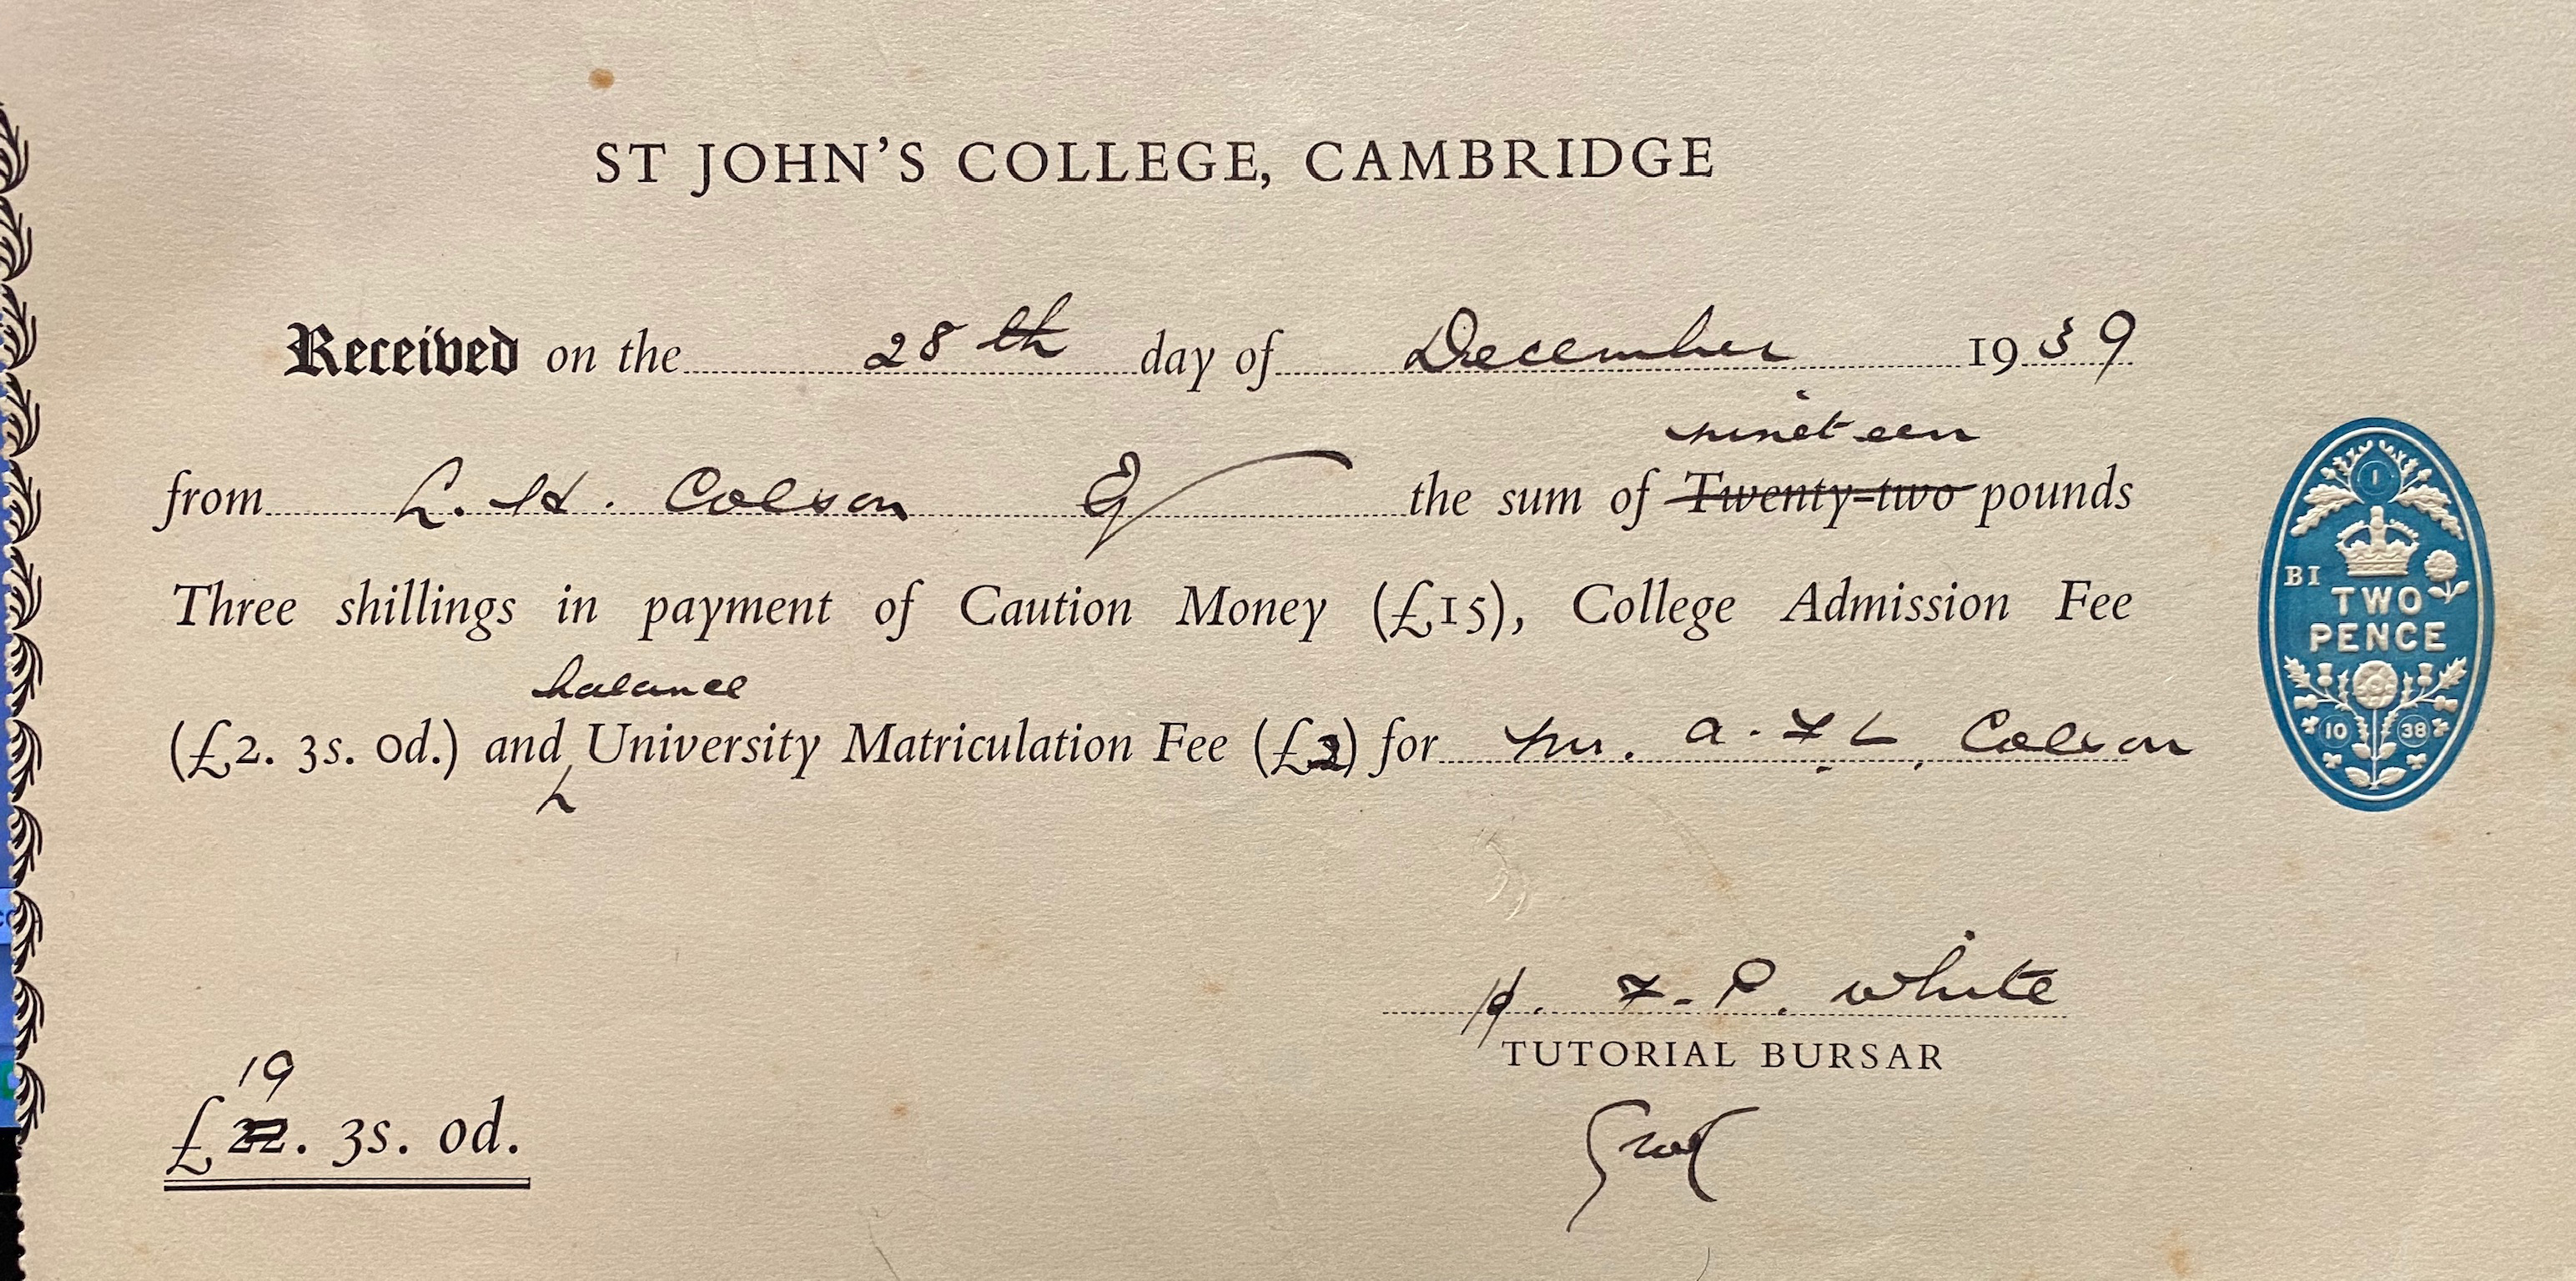 ST JOHN'S COLLEGE, CAMBRIDGE
Received on the 28th day of December 1939
nineteen
from L. H. Colson Esq the sum of Twenty-two pounds
Three shillings in payment of Caution Money (£15), College Admission Fee
balance
(£2. 3s. 0d.) and University Matriculation Fee (£2) for Mr. A. F. L. Colson
BI
TWO
PENCE
1
10 38
F. P. White
TUTORIAL BURSAR
19
£22. 3s. 0d.